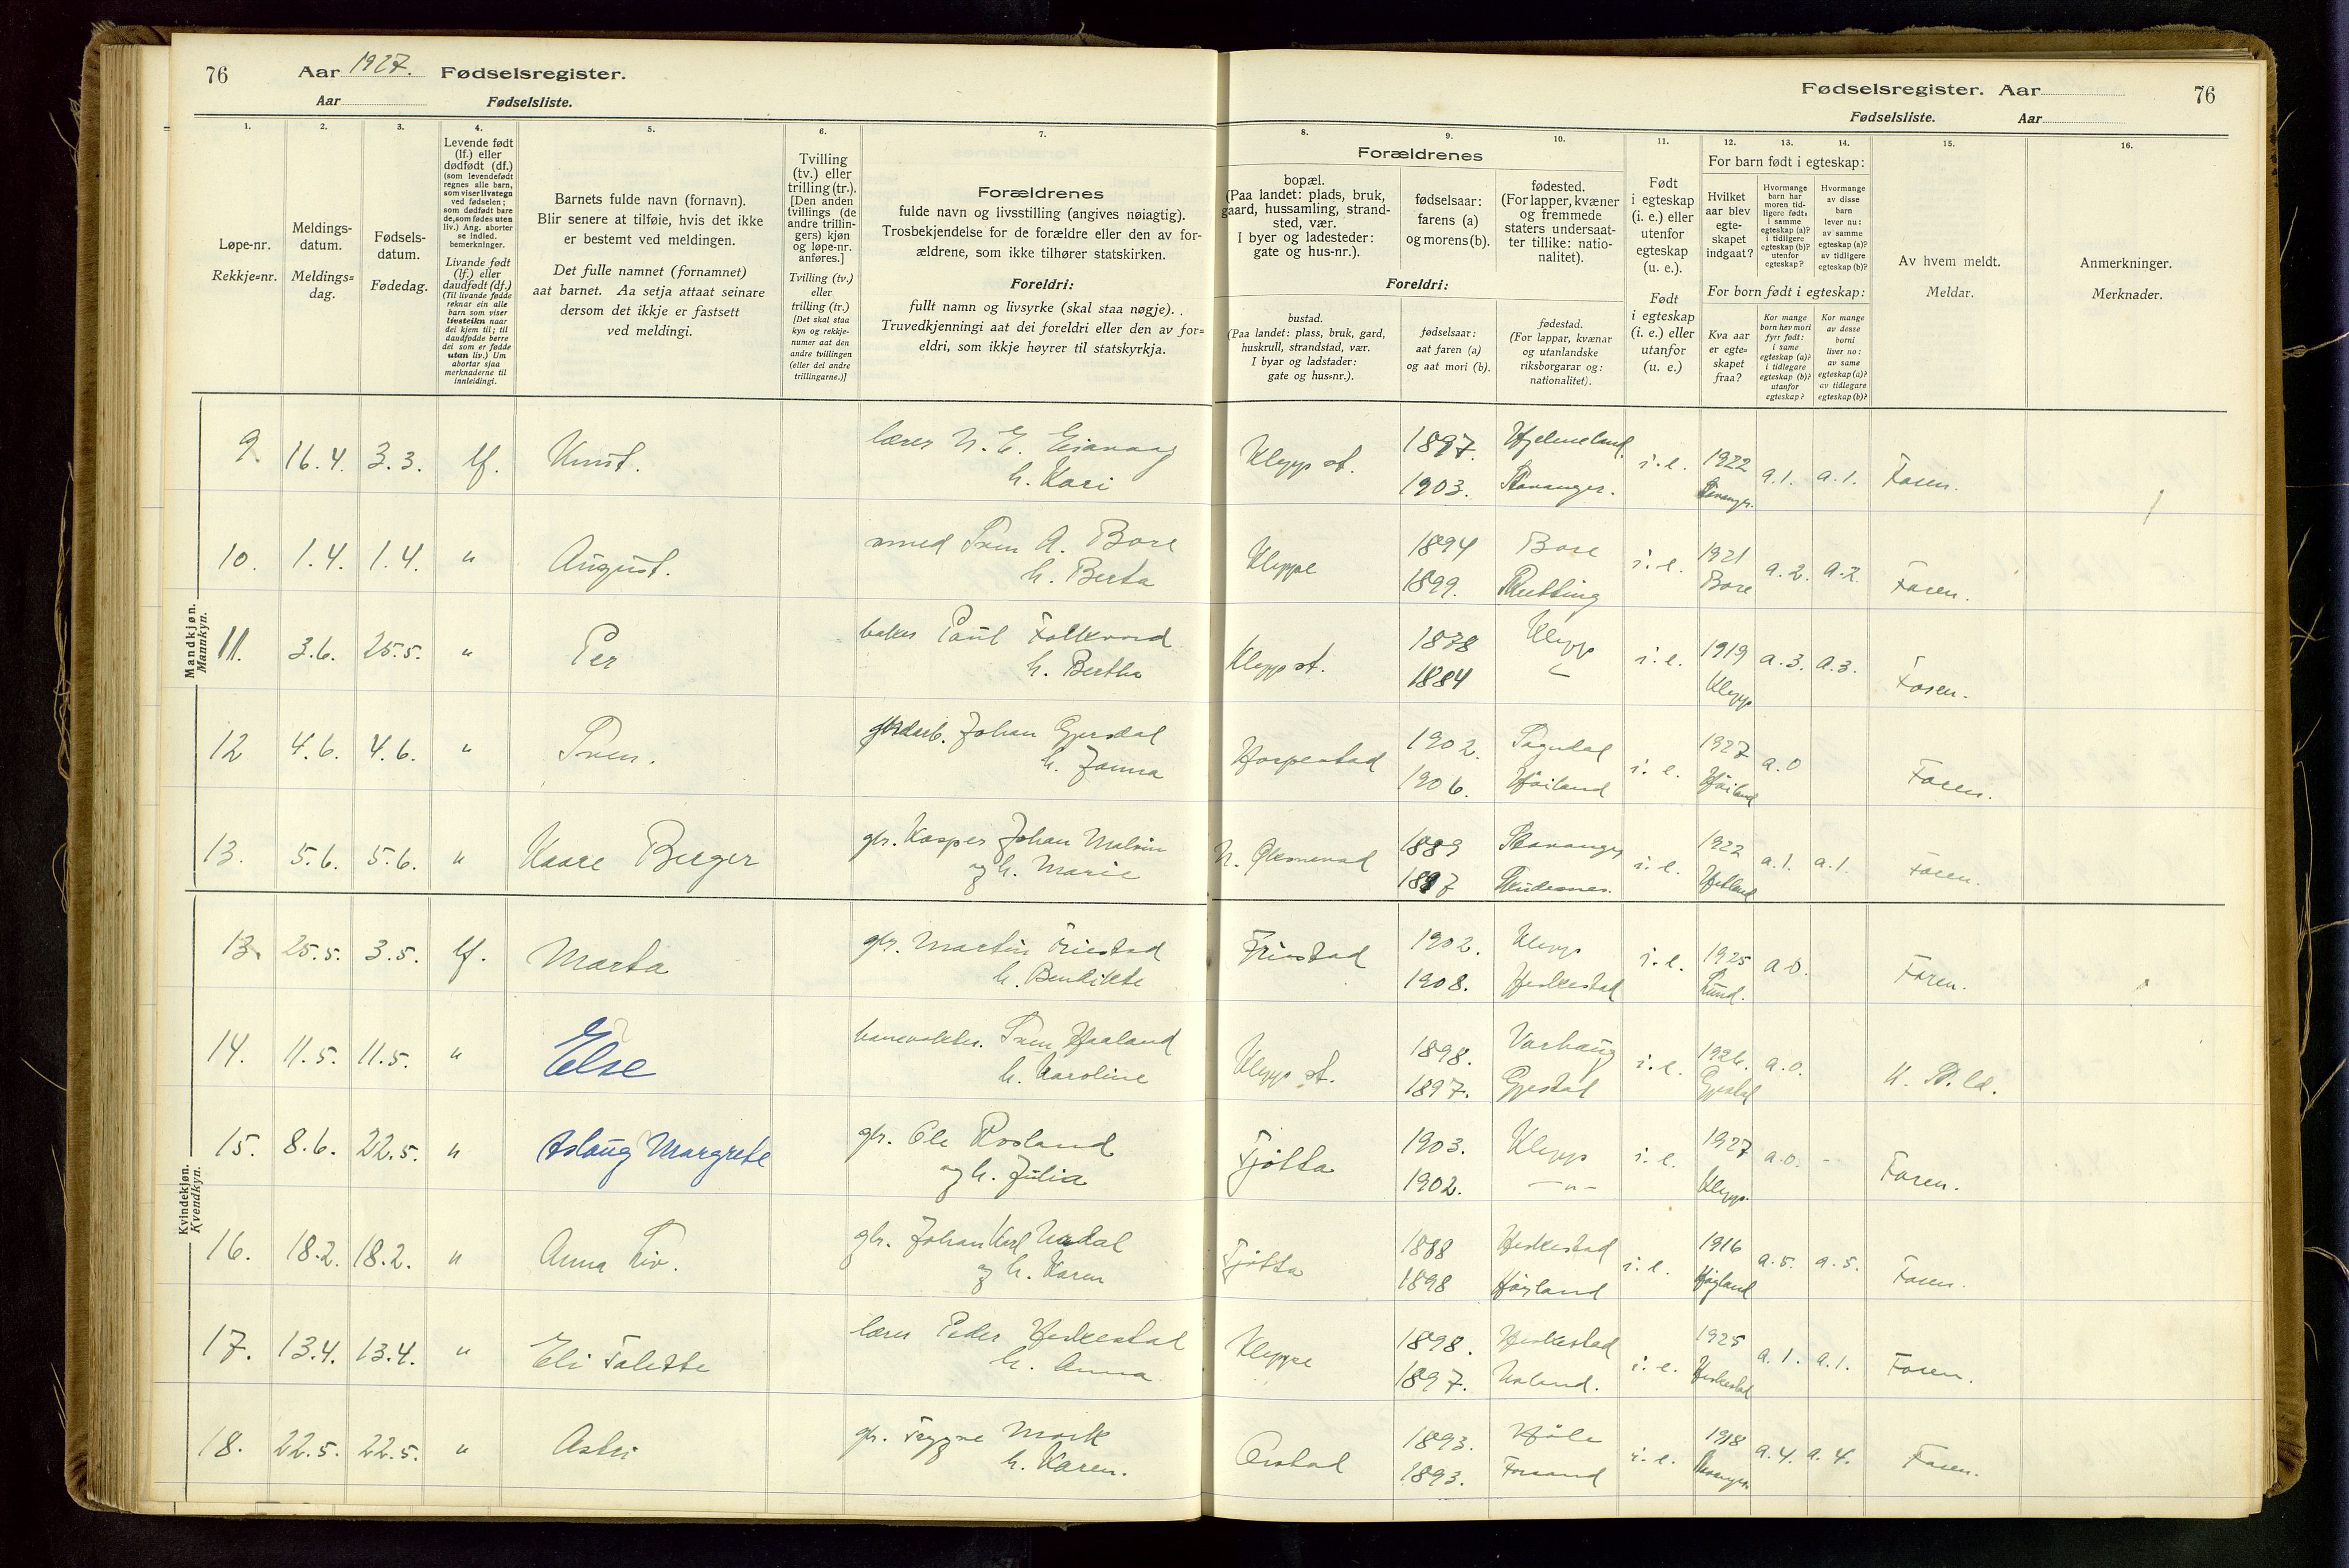 76 Aar 1927. Fødselsregister.
Aar Fødselsliste.
Fødselsregister. Aar 76
Fødselsliste. Aar
1. 2. 3. 4. 5. 6. 7. 8. 9. 10. 11. 12. 13. 14. 15. 16.
Løpe-nr.
Rekkje=nr.
Meldings-
datum.
Meldings=
dag.
Fødsels-
datum.
Fødedag.
Levende født
(lf.) eller
dødfødt (df.)
(som levendefødt
regnes alle barn,
som viser livstegn
ved fødselen;
som dødfødt bare
de, som fødes uten
liv.) Ang. aborter
se indled.
bemerkninger.
Livande født
(lf.) eller
daudfødt (df.)
(Til livande fødde
reknar ein alle
barn som viser
livsteikn naar
dei kjem til; til
daudfødde berre
dei som er fødde
utan liv.) Um
abortar sjaa
merknaderne til
innleidingi.
Barnets fulde navn (fornavn).
Blir senere at tilføie, hvis det ikke
er bestemt ved meldingen.
Det fulle namnet (fornamnet)
aat barnet. Aa setja attaat seinare
dersom det ikkje er fastsett
ved meldingi.
Tvilling
(tv.) eller
trilling (tr.).
[Den anden
tvillings (de
andre trillin-
gers) kjøn
og løpe-nr.
anføres.]
Tvilling (tv.)
eller
trilling (tr.)
[Det skal staa
kyn og rekkje-
numer aat den
andre tvillingen
(eller dei andre
trillingarne.)]
Forældrenes
fulde navn og livsstilling (angives nøiagtig).
Trosbekjendelse for de forældre eller den av for-
ældrene, som ikke tilhører statskirken.
Foreldri:
fullt namn og livsyrke (skal staa nøgje).
Truvedkjenningi aat dei foreldri eller den av for=
eldri, som ikkje høyrer til statskyrkja.
Forældrenes
bopæl.
(Paa landet: plads, bruk,
gaard, hussamling, strand-
sted, vær.
I byer og ladesteder:
gate og hus-nr.).
fødselsaar:
farens (a)
og morens (b).
fødested.
(For lapper, kvæner
og fremmede
staters undersaat-
ter tillike: natio-
nalitet).
Foreldri:
bustad.
(Paa landet: plass, bruk, gard,
huskrull, strandstad, vær.
I byar og ladstader:
gate og hus=nr.).
fødselsaar:
aat faren (a)
og aat mori (b).
fødestad.
(For lappar, kvænar
og utanlandske
riksborgarar og:
nationalitet).
Født
i egteskap
(i. e.) eller
utenfor
egteskap
(u. e.).
Født
i egteskap
(i. e.) eller
utanfor
(u. e.)
For barn født i egteskap:
Hvilket
aar blev
egte-
skapet
indgaat?
Hvormange
barn har
moren tid-
ligere født:
i samme
egteskap (a)?
i tidligere
egteskap (b)?
utenfor
egteskap?
Hvormange
av disse
barn
lever nu:
av samme
egteskap (a)?
av tidligere
egteskap (b)?
For born født i egteskap:
Kva aar
er egte=
skapet
fraa?
Kor mange
born hev mori
fyrr født:
i same
egteskap (a)?
i tidlegare
egteskap (b)?
utanfor
egteskap?
Kor mange
av desse
borni
liver no:
av same
egteskap (a)?
av tidlegare
egteskap (b)?
Av hvem meldt.
Meldar.
Anmerkninger.
Merknader.
Mandkjøn.
Mannkyn.
9. 16.4. 3.3. lf. Knut. lærer N. E. Eiavaag Klepp st. 1897. Hjelmeland. i.e. 1922 a.1. a.1. Faren.
h. Kari 1903. Stavanger. Stavanger.
10. 1.4. 1.4. " August. smed Sven A. Bore Kleppe 1894 Bore i.e. 1921 a.2. a.2. Faren.
h. Berta 1899. Bore
11. 3.6. 25.5. " Per baker Paul Folkvord Klepp st. 1878 Klepp i.e. 1919 a.3. a.3. Faren.
h. Bertha 1884 Klepp
12 4.6. 4.6. " Sven. Johan Gjesdal Horpestad 1902. Sogndal i.e. 1927 a.0 Faren.
h. Janna 1906. Høiland Høiland
13. 5.6. 5.6. " Kaare Berger gbr. Kasper Johan Malvin N. Øksnevad 1889 Stavanger i.e. 1922 a.1. a.1. Faren.
og h. Marie 1897 Skudesnes. Hetland
Kvindekjøn.
Kvendkyn.
13. 25.5. 3.5. lf. Marta gbr. Martin Friestad Friestad 1902. Klepp i.e. 1925 a.0. Faren.
h. Bendikte 1908. Heskestad Lund.
14. 11.5. 11.5. " Else banevokter. Sven Haaland Klepp st. 1898. Varhaug i.e. 1926. a.0.
h. Karoline 1897. Gjestal Gjestal
15. 8.6. 22.5. " Aslaug Margrete gbr. Ole Rosland Tjøtta 1903. Klepp i.e. 1927 a.0. - Faren.
og h. Julia 1902. -"- Klepp.
16. 18.2. 18.2. " Anna Liv. gbr. Johan Karl Uadal Tjøtta 1888 Heskestad i.e. 1916 a.5. a.5. Faren.
og h. Karen 1898 Høyland Høyland
17. 13.4. 13.4. " Eli Talette lærer Peder Heskestad Kleppe 1898. Heskestad i.e. 1925 a.1. a.1. Faren.
h. Anna 1897. Ualand. Heskestad
18. 22.5. 22.5. " Astri gbr. Trygve Mork Orstad 1893. Høle i.e. 1918 a.4. a.4. Faren.
h. Karen. 1893. Forsand Stavanger.